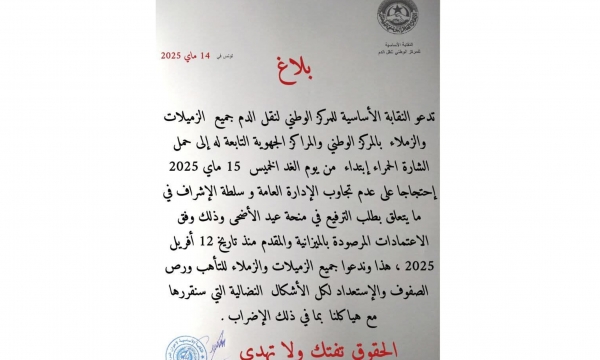 النقابة الأساسية
للمركز الوطني لنقل الدم
تونس في 14 ماي 2025
بلاغ
تدعو النقابة الأساسية للمركز الوطني لنقل الدم جميع الزميلات
والزملاء بالمركز الوطني والمراكز الجهوية التابعة له إلى حمل
الشارة الحمراء إبتداء من يوم الغد الخميس 15 ماي 2025
إحتجاجا على عدم تجاوب الإدارة العامة و سلطة الإشراف في
ما يتعلق بطلب الترفيع في منحة عيد الأضحى وذلك وفق
الاعتمادات المرصودة بالميزانية والمقدم منذ تاريخ 12 أفريل
2025 ، هذا وندعوا جميع الزميلات والزملاء للتأهب ورص
الصفوف والإستعداد لكل الأشكال النضالية التي سنقررها
مع هياكلنا بما في ذلك الإضراب .
الحقوق تفتك ولا تهدى